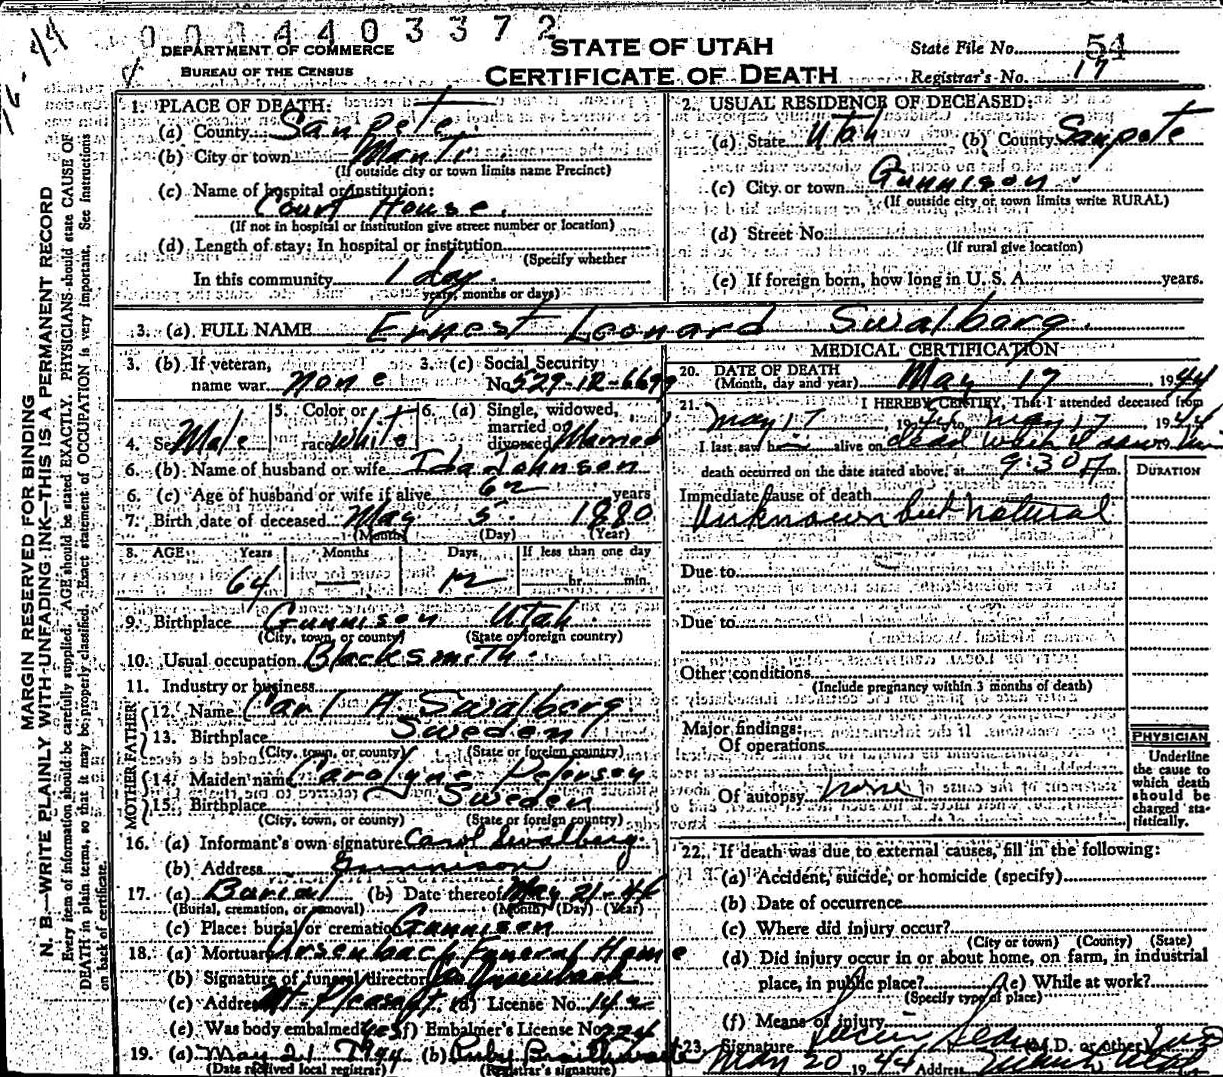 0004403372
DEPARTMENT OF COMMERCE
BUREAU OF THE CENSUS
STATE OF UTAH
CERTIFICATE OF DEATH
State File No. 54
Registrar's No. 17
MARGIN RESERVED FOR BINDING
N. B.—WRITE PLAINLY WITH UNFADING INK—THIS IS A PERMANENT RECORD
Every item of information should be carefully supplied. AGE should be stated EXACTLY. PHYSICIANS should state CAUSE OF
DEATH in plain terms, so that it may be properly classified. Exact statement of OCCUPATION is very important. See instructions
on back of certificate.
1. PLACE OF DEATH:
(a) County Sanpete
(b) City or town Manti
(If outside city or town limits name Precinct)
(c) Name of hospital or institution:
Court House.
(If not in hospital or institution give street number or location)
(d) Length of stay: In hospital or institution
(Specify whether
In this community 1 day.
years, months or days)
2. USUAL RESIDENCE OF DECEASED:
(a) State Utah (b) County Sanpete
(c) City or town Gunnison.
(If outside city or town limits write RURAL)
(d) Street No.
(If rural give location)
(e) If foreign born, how long in U. S. A. years.
3. (a) FULL NAME Ernest Leonard Swalberg.
3. (b) If veteran, name war None
3. (c) Social Security No. 529-12-6699
4. Sex Male
5. Color or race White
6. (a) Single, widowed, married or divorced Married
6. (b) Name of husband or wife Ida Johnson
6. (c) Age of husband or wife if alive 62 years
7. Birth date of deceased May 5 1880
(Month) (Day) (Year)
8. AGE Years Months Days If less than one day
64 — 12 hr. min.
9. Birthplace Gunnison Utah.
(City, town, or county) (State or foreign country)
10. Usual occupation Blacksmith.
11. Industry or business
FATHER
12. Name Carl A. Swalberg
13. Birthplace Sweden
(City, town, or county) (State or foreign country)
MOTHER
14. Maiden name Carolyne Petersen
15. Birthplace Sweden
(City, town, or county) (State or foreign country)
16. (a) Informant's own signature Carol Swalberg
(b) Address Gunnison
17. (a) Burial (b) Date thereof May 21-44
(Burial, cremation, or removal) (Month) (Day) (Year)
(c) Place: burial or cremation Gunnison
18. (a) Mortuary Ursenbach Funeral Home
(b) Signature of funeral director Ursenbach
(c) Address Mt Pleasant. (d) License No. 142
(e) Was body embalmed? yes (f) Embalmer's License No. 224
19. (a) May 21 1944 (b) Ruby Braithwaite
(Date received local registrar) (Registrar's signature)
MEDICAL CERTIFICATION
20. DATE OF DEATH
(Month, day and year) May 17, 1944
21. I HEREBY CERTIFY, That I attended deceased from
May 17, 1944 to May 17 1944
I last saw h alive on dead when I saw him
death occurred on the date stated above, at 9:30 A m.
DURATION
Immediate cause of death
Unknown but natural
Due to
Due to
Other conditions
(Include pregnancy within 3 months of death)
Major findings:
Of operations
Of autopsy none
PHYSICIAN
Underline
the cause to
which death
should be
charged sta-
tistically.
22. If death was due to external causes, fill in the following:
(a) Accident, suicide, or homicide (specify)
(b) Date of occurrence
(c) Where did injury occur?
(City or town) (County) (State)
(d) Did injury occur in or about home, on farm, in industrial
place, in public place? (e) While at work?
(Specify type of place)
(f) Means of injury
23. Signature (M.D. or other)
May 20 1944 Address Manti Utah